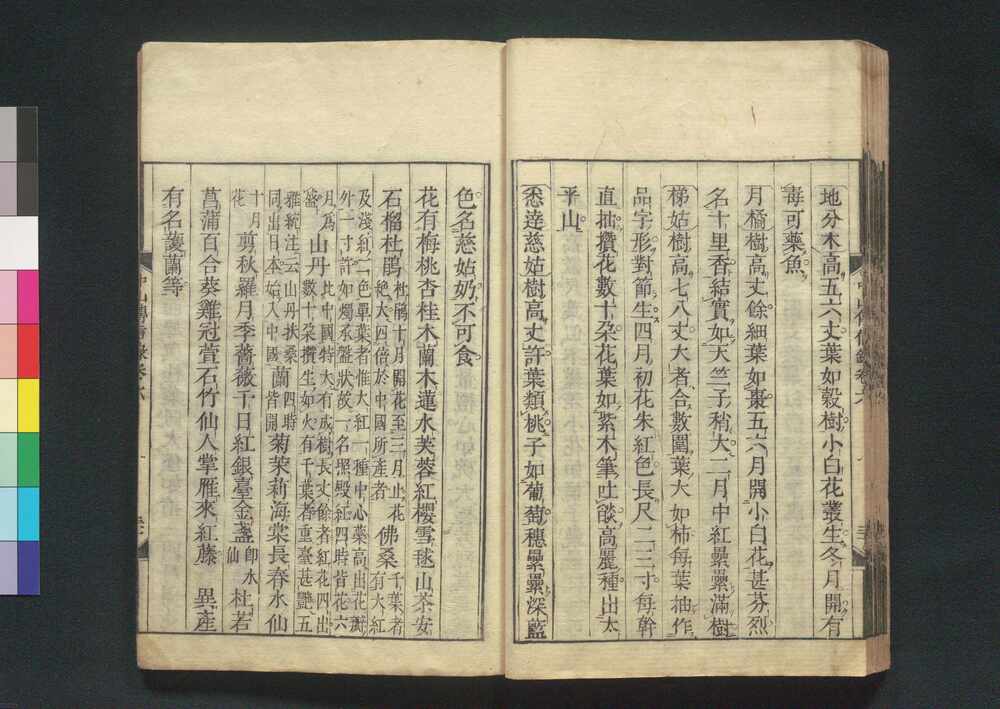 地分木高五六丈葉如穀樹小白花叢生冬月開有
毒可藥魚
月橘樹高丈餘細葉如棗五六月開小白花甚芬烈
名十里香結實如天竺子稍大二月中紅纍纍滿樹
梯姑樹高七八丈大者合數圍葉大如柿每葉抽作
品字形對節生四月初花朱紅色長尺二三寸每幹
直抽攢花數十朶花葉如紫木筆吐燄高麗種出太
平山
悉達慈姑樹高丈許葉類桃子如葡萄穗纍纍深藍
色名慈姑奶不可食
花有梅桃杏桂木蘭木蓮水芙蓉紅櫻雪毬山茶安
石榴杜鵑杜鵑十月開花至三月止花
絶大四倍於中國所產者佛桑千葉者
有大紅
及淺紅二色單葉者惟大紅一種中心蘂高出花瓣
外一寸許如燭承盤狀故一名照殿紅四時皆花六
月為
盛山丹比中國特大有成樹長丈餘者紅花四出
數十朶攢生如火有千葉者重臺甚艷五
雅統注云山丹扶桑四時
同出日本始入中國蘭四時
皆開菊茉莉海棠長春水仙
十月
花剪秋羅月季薔薇千日紅銀臺金盞卽水
仙杜若
菖蒲百合葵雞冠萱石竹仙人掌雁來紅藤異產
有名護蘭等